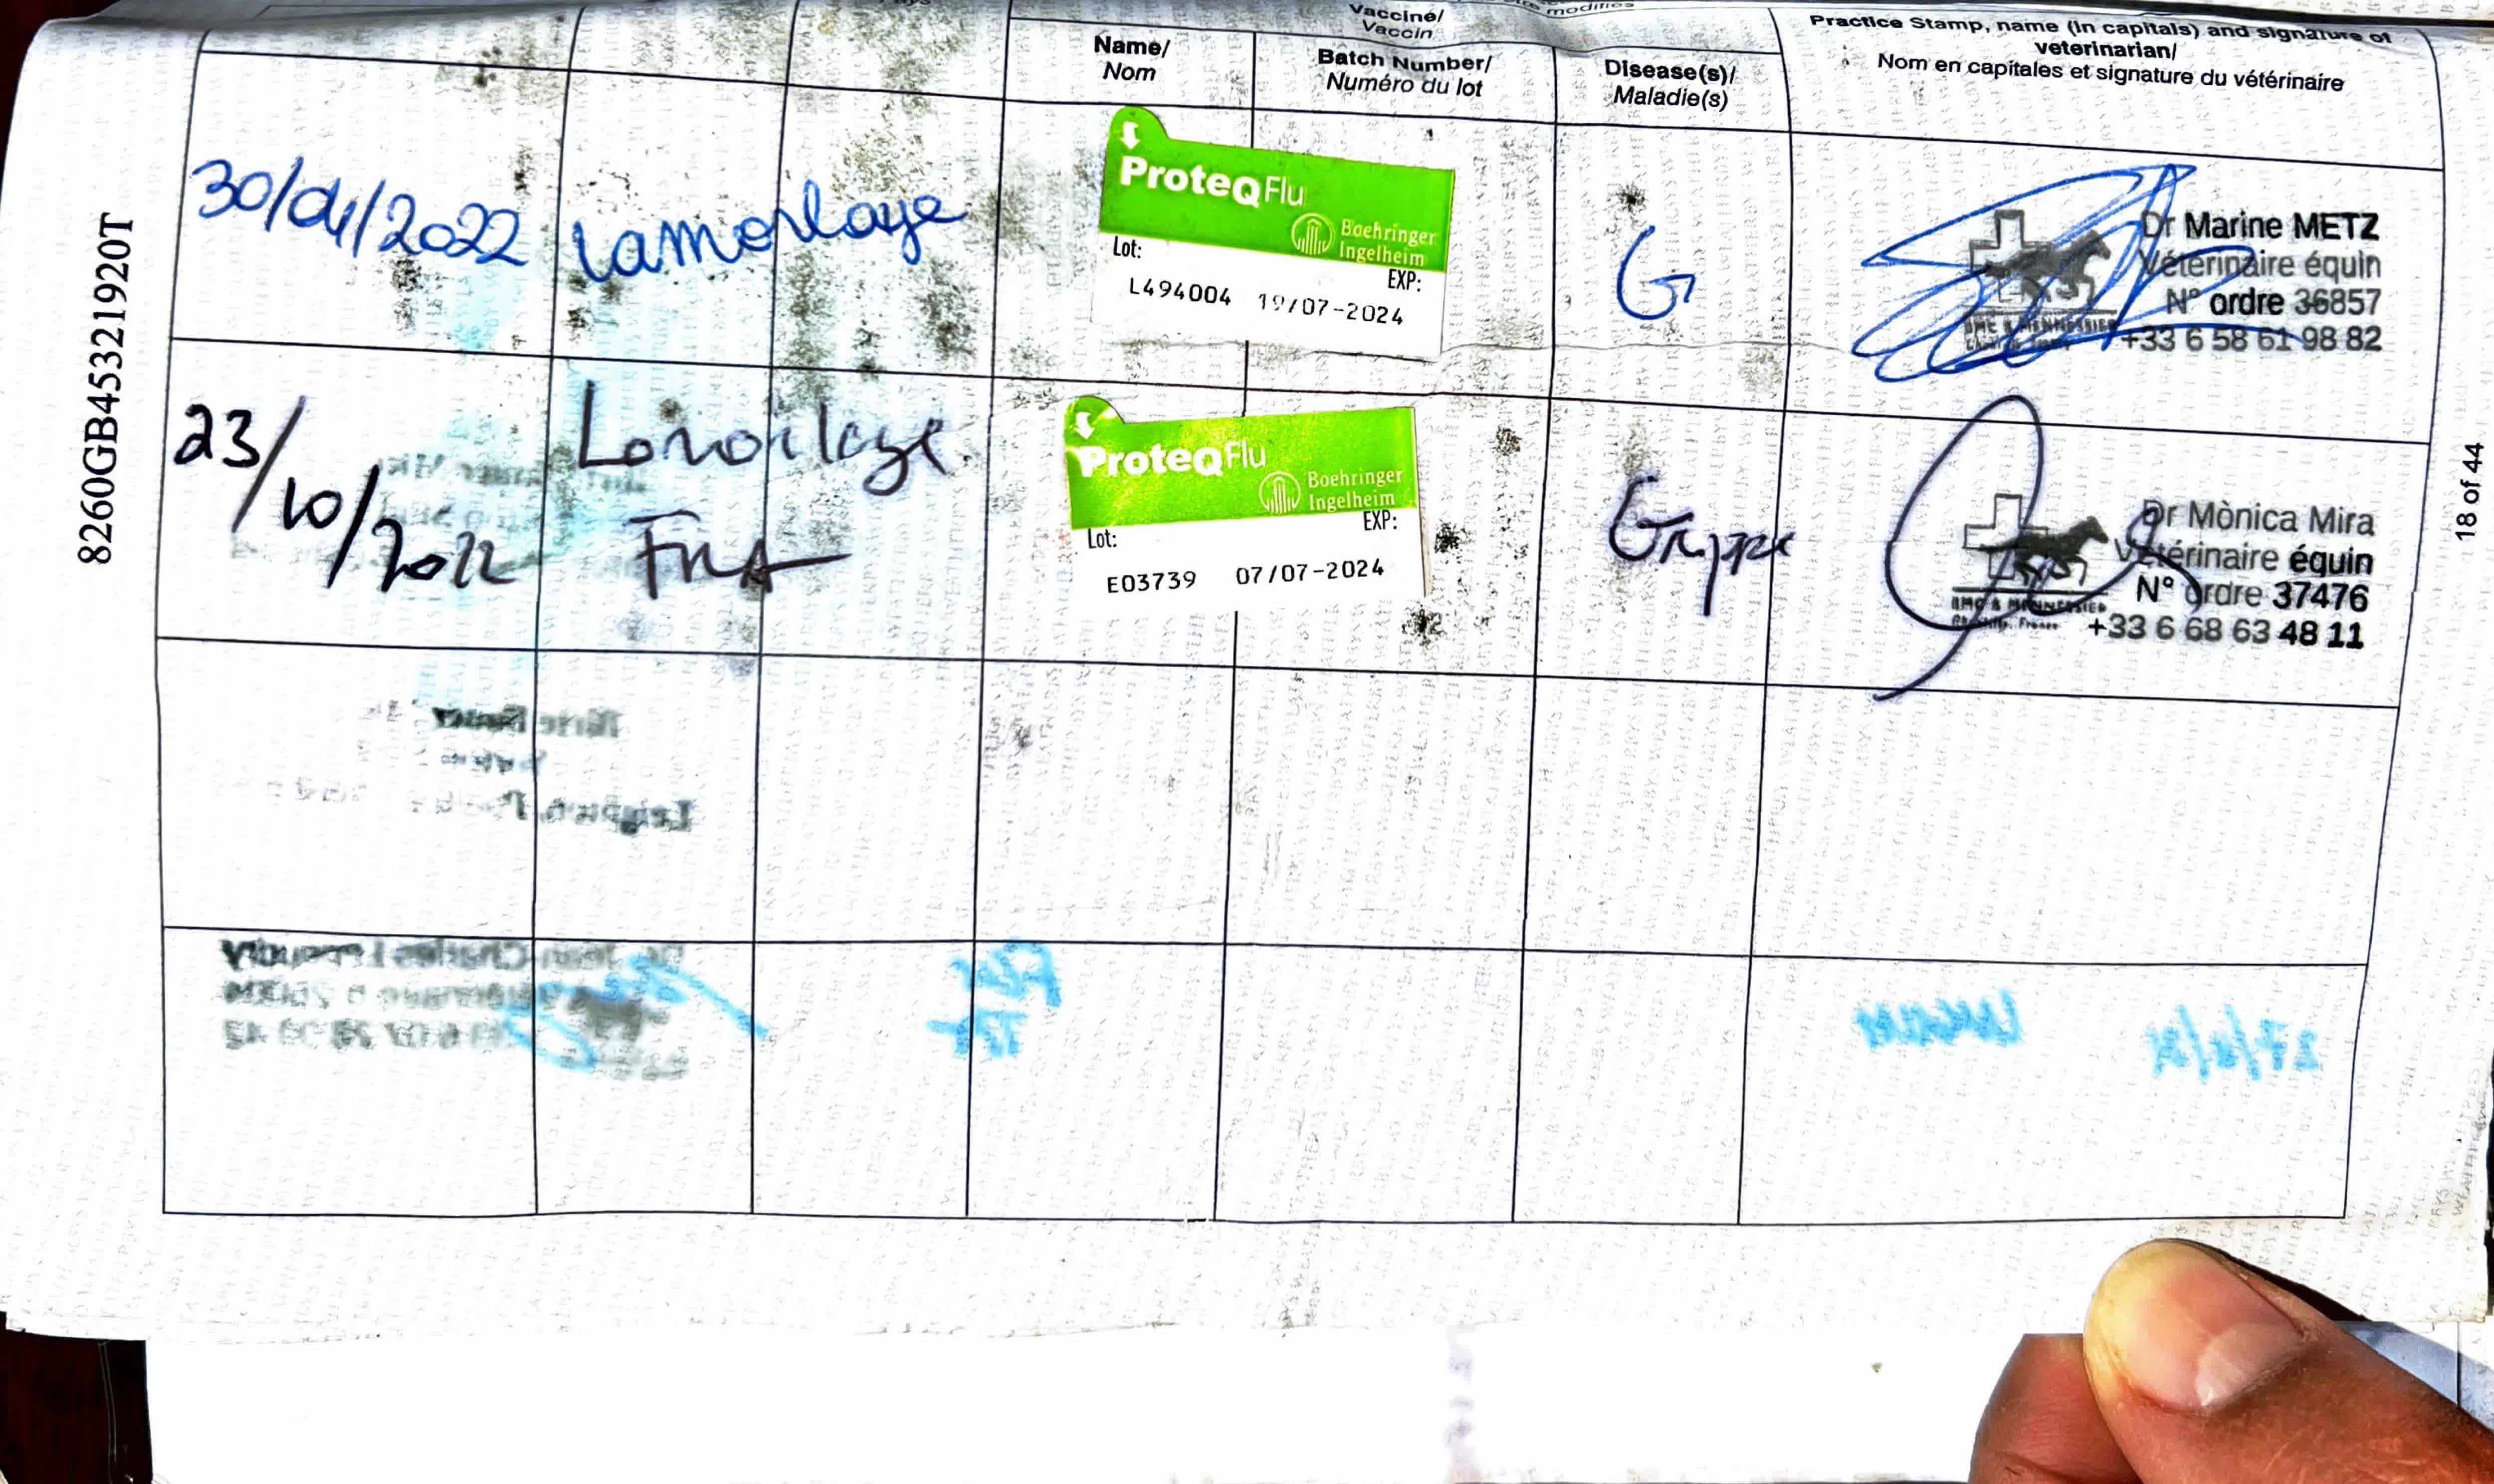 Vaccine/
Vaccin
Practice Stamp, name (in capitals) and signature of
veterinarian/
Nom en capitales et signature du vétérinaire
Name/
Nom
Batch Number/
Numéro du lot
Disease(s)/
Maladie(s)
30/04/2022
Lamorlaye
ProteqFlu
Boehringer
Ingelheim
Lot:
EXP:
L494004 19/07-2024
G
Dr Marine METZ
Vétérinaire équin
N° ordre 36857
+33 6 58 61 98 82
23/
10/2022
Lamorlaye
FRA
ProteqFlu
Boehringer
Ingelheim
Lot:
EXP:
E03739 07/07-2024
Grippe
Dr Mònica Mira
Vétérinaire équin
N° ordre 37476
+33 6 68 63 48 11
8260GB45321920T
18 of 44